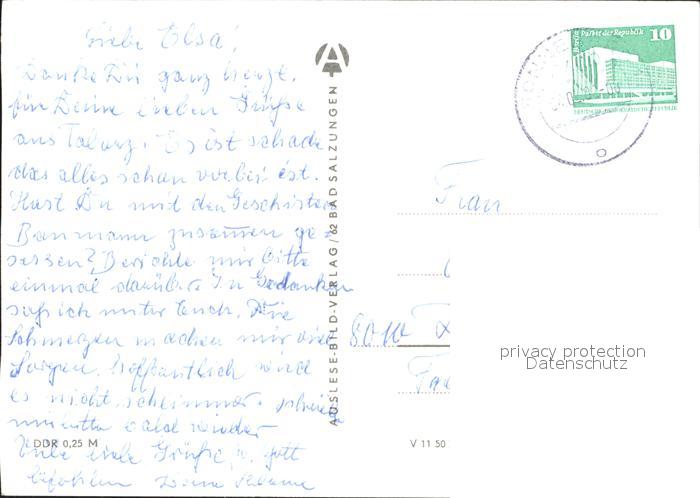 Liebe Elsa!
Danke Dir ganz herzl.
für Deine lieben Grüße
aus Tabarz. Es ist schade
das alles schon vorbei ist.
Hast Du mit den Geschister
Baumann zusammen ge=
sessen? Berichte mir bitte
einmal darüber. In Gedanken
saß ich unter Euch. Die
Schmerzen machen mir viel
Sorgen. Hoffentlich wird
es nicht schlimmer. schreibe
mir bitte bald wieder
Viele liebe Grüße u. Gott
befohlen Deine
DDR 0,25 M
AUSLESE-BILD-VERLAG / 62 BAD SALZUNGEN
V 11 50
Berlin, Palast der Republik
10
Frau
privacy protection
Datenschutz